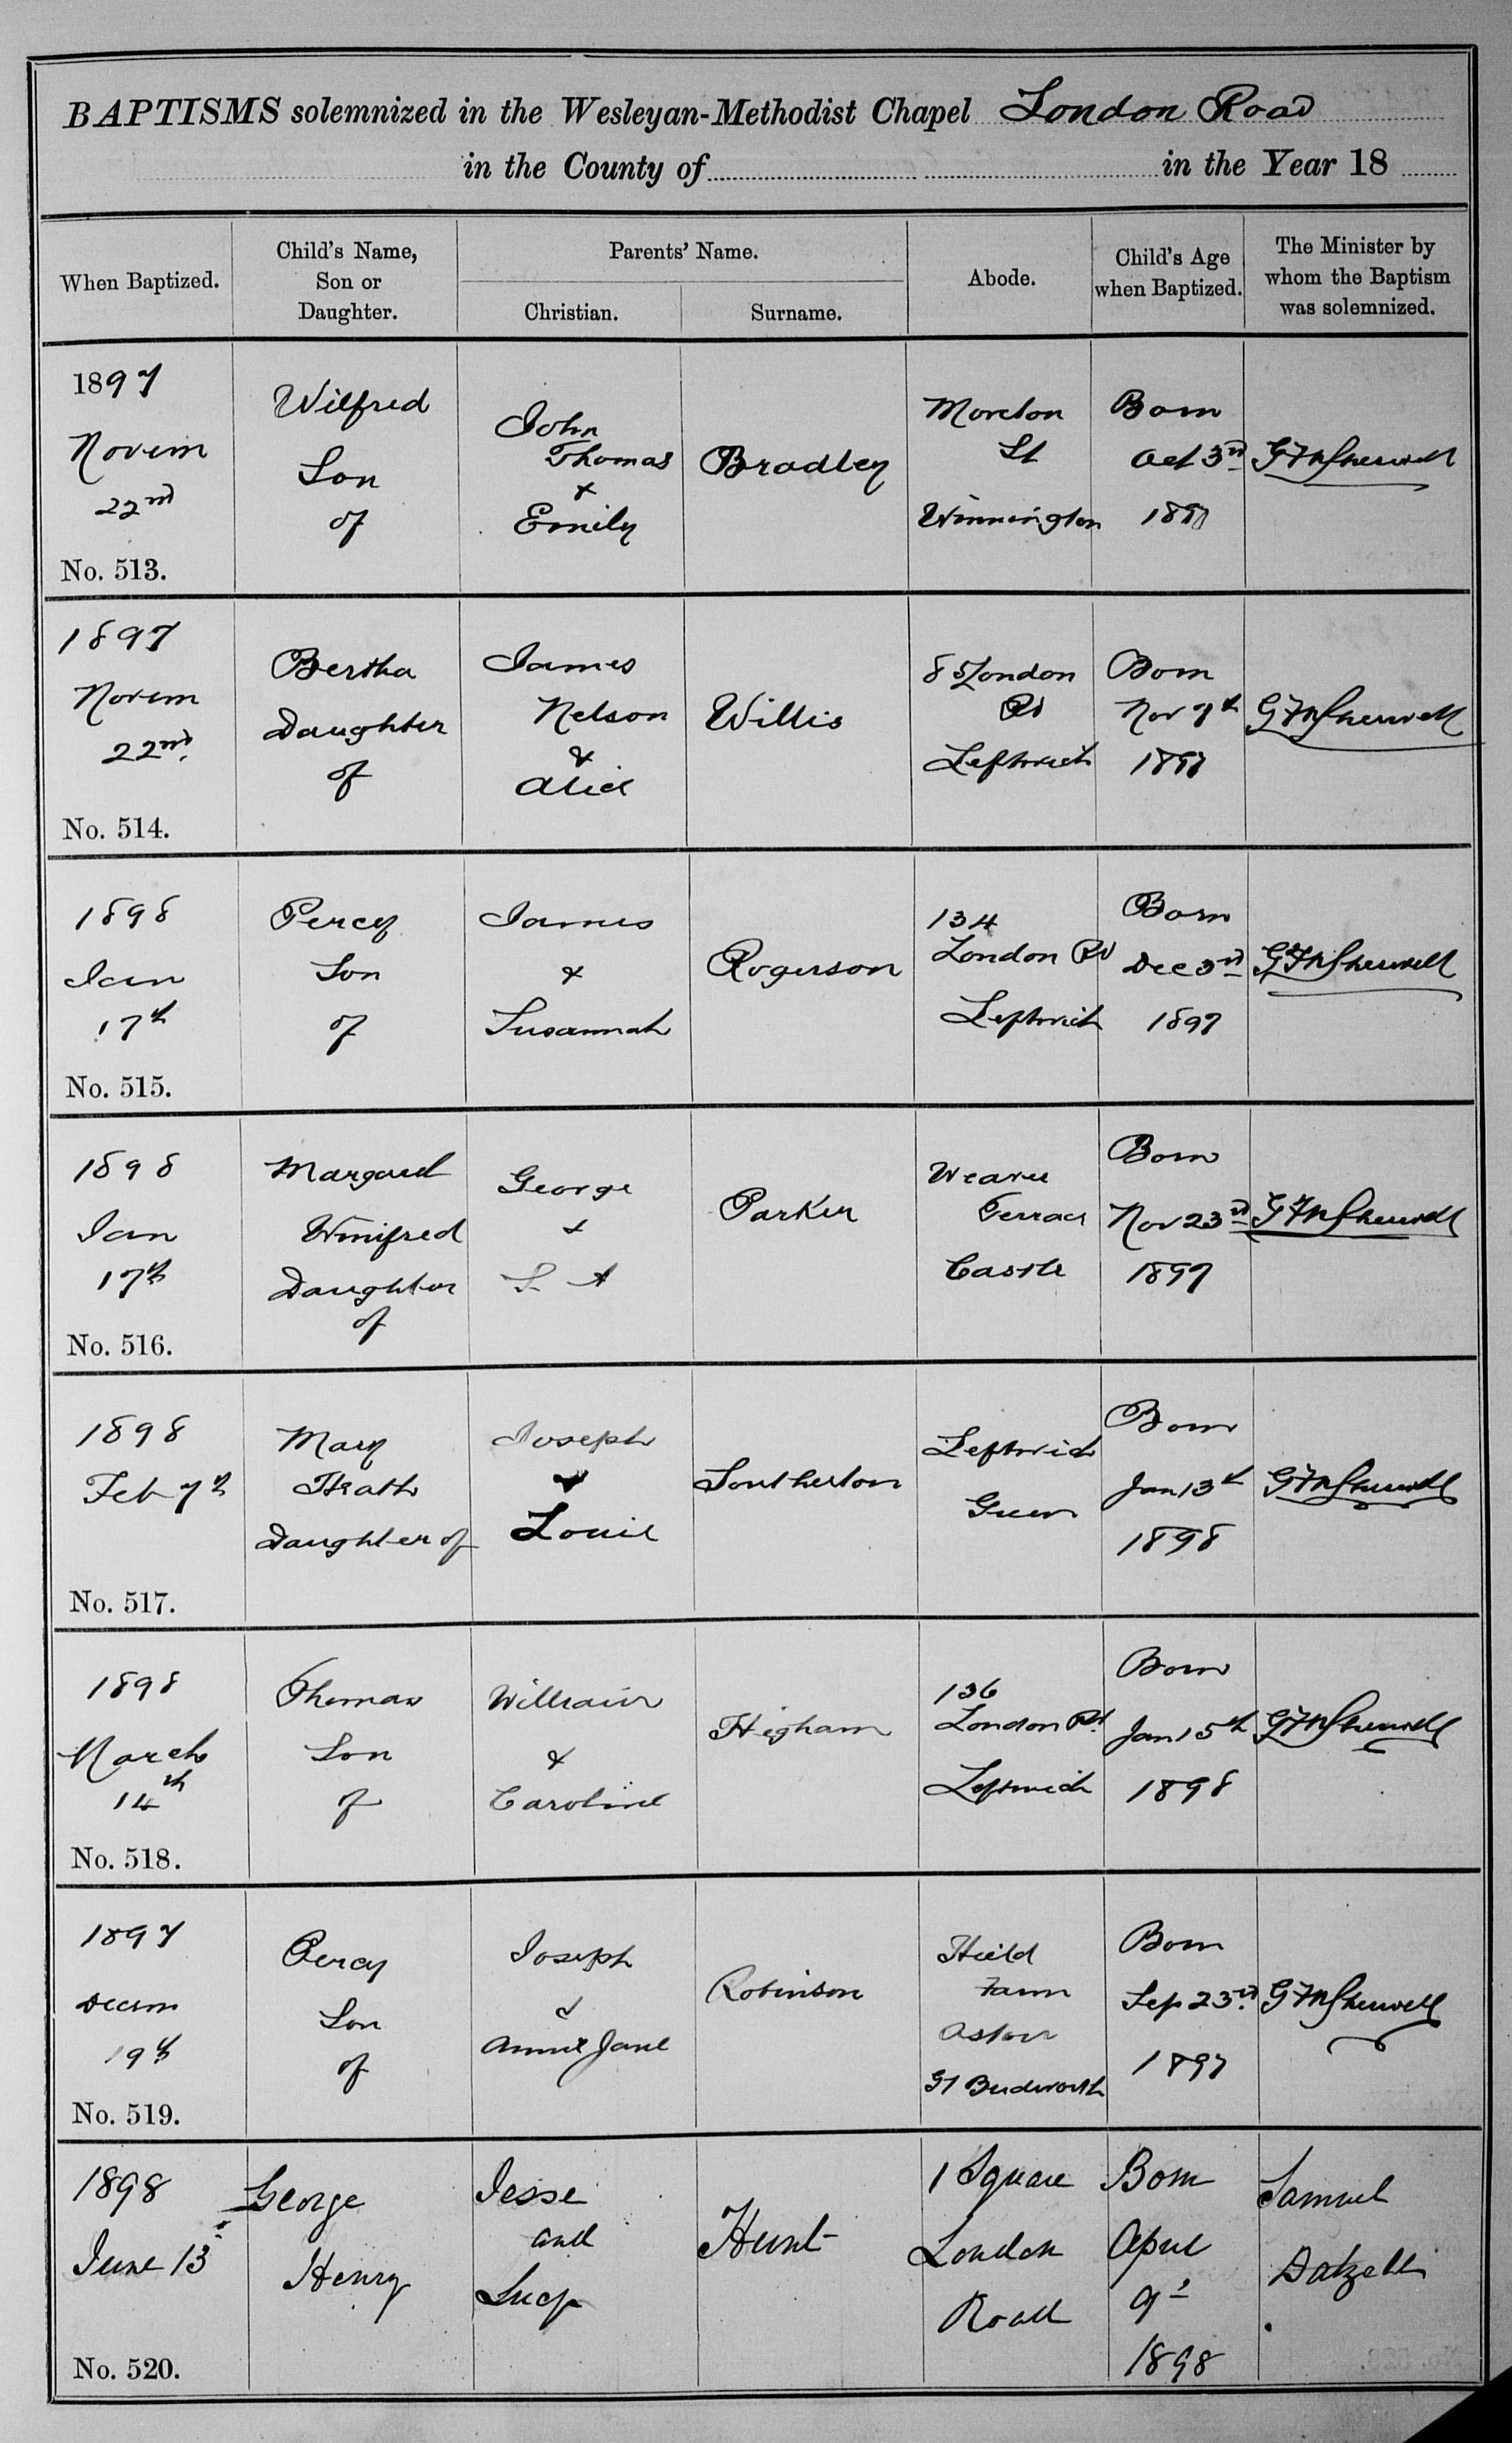 BAPTISMS solemnized in the Wesleyan-Methodist Chapel London Road
in the County of in the Year 18
When Baptized.
Child's Name,
Son or
Daughter.
Parents' Name.
Christian.
Surname.
Abode.
Child's Age
when Baptized.
The Minister by
whom the Baptism
was solemnized.
1897
Novem
22nd
No. 513.
Wilfred
Son
of
John
Thomas
&
Emily
Bradley
Moreton
St
Winnington
Born
Oct 3rd
1897
GFWSherwell
1897
Novem
22nd
No. 514.
Bertha
Daughter
of
James
Nelson
&
Alice
Willis
85 London
Rd
Leftwich
Born
Nov 7th
1897
GFWSherwell
1898
Jan
17th
No. 515.
Percy
Son
of
James
&
Susannah
Rogerson
134
London Rd
Leftwich
Born
Dec 3rd
1897
GFWSherwell
1898
Jan
17th
No. 516.
Margaret
Winifred
Daughter
of
George
&
S A
Parker
Weaver
Terrace
Castle
Born
Nov 23rd
1897
GFWSherwell
1898
Feb 7th
No. 517.
Mary
Heath
Daughter of
Joseph
&
Louie
Southerton
Leftwich
Green
Born
Jan 13th
1898
GFWSherwell
1898
March
14th
No. 518.
Thomas
Son
of
William
&
Caroline
Higham
136
London Rd
Leftwich
Born
Jan 15th
1898
GFWSherwell
1897
Decem
19th
No. 519.
Percy
Son
of
Joseph
&
Annie Jane
Robinson
Hield
Farm
Aston
Gt Budworth
Born
Sep 23rd
1897
GFWSherwell
1898
June 13
No. 520.
George
Henry
Jesse
and
Lucy
Hunt
1 Square
London
Road
Born
April
9th
1898
Samuel
Dalzell